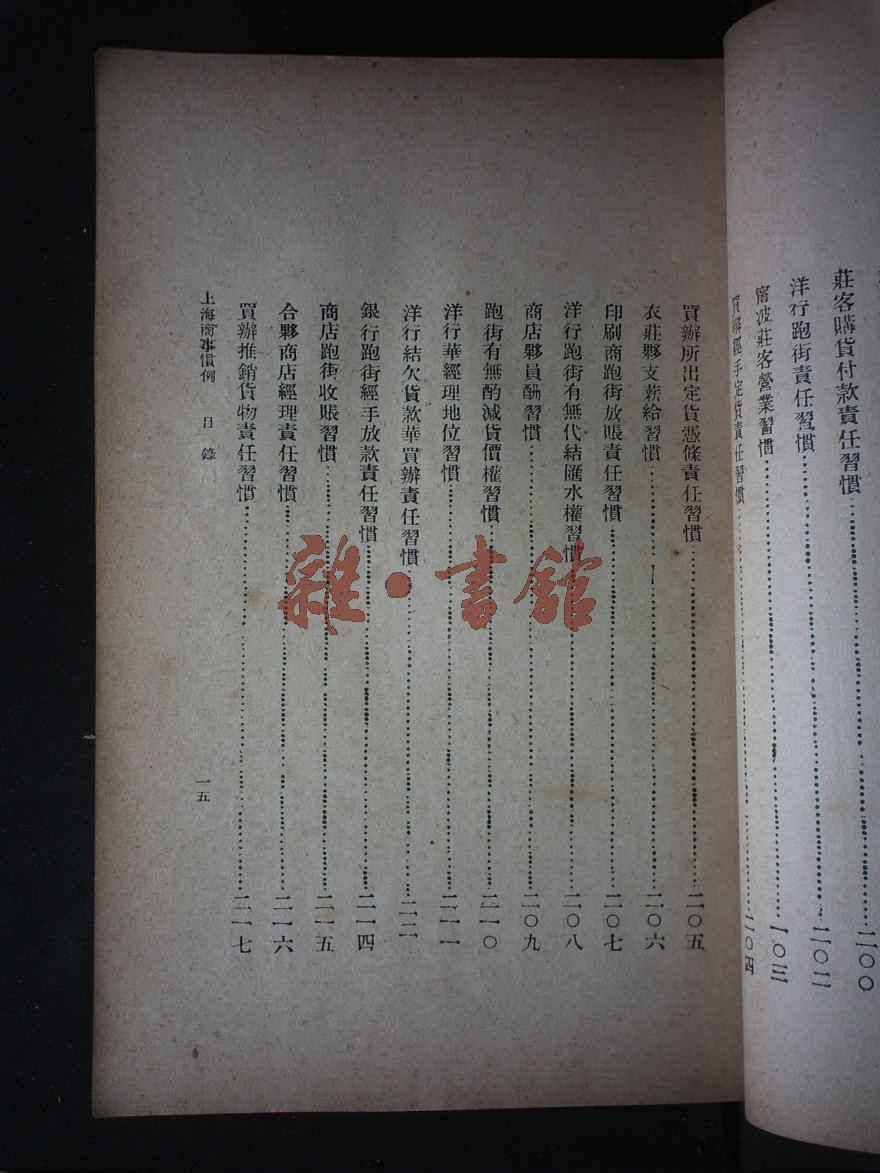 莊客購貨付款責任習慣……二〇〇
洋行跑街責任習慣……二〇二
甯波莊客營業習慣……二〇三
買辦經手定貨責任習慣……二〇四
買辦所出定貨憑條責任習慣……二〇五
衣莊夥支薪給習慣……二〇六
印刷商跑街放賬責任習慣……二〇七
洋行跑街有無代結匯水權習慣……二〇八
商店夥員酬習慣……二〇九
跑街有無酌減貨價權習慣……二一〇
洋行華經理地位習慣……二一一
洋行結欠貨款華買辦責任習慣……二一二
銀行跑街經手放款責任習慣……二一四
商店跑街收賬習慣……二一五
合夥商店經理責任習慣……二一六
買辦推銷貨物責任習慣……二一七
上海商事慣例 目錄 一五
雜·書館